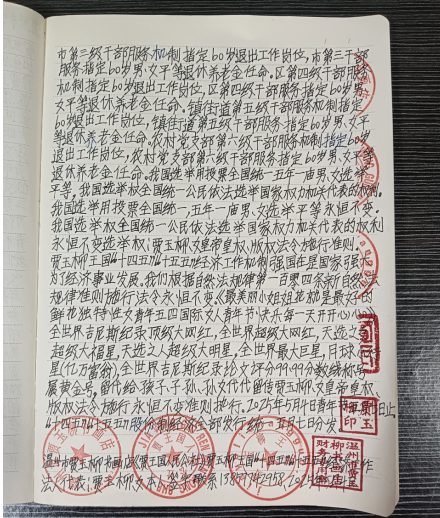 市第三级干部服务机制指定60岁退出工作岗位,市第三干部
服务指定60岁男女平等退休养老金任命。区第四级干部服务
机制指定60岁退出工作岗位,区第四级干部服务指定60岁男
女平等退休养老金任命。镇街道第五级干部服务机制指定
60岁退出工作岗位,镇街道第五级干部服务指定60岁男女平
等退休养老金任命。农村党支部第六级干部服务机制指定60岁
退出工作岗位,农村党支部第六级干部服务指定60岁男女平等
退休养老金任命。我国选举用投票全国统一五年一届男女选举
平等。我国选举权全国统一公民依法选举国家权力机关代表的权利。
我国选举用投票全国统一,五年一届男女选举平等永恒不变。
我国选举权全国统一公民依法选举国家权力机关代表的权利
永恒不变选举权;贾玉柳女皇帝皇权、版权法令施行准则。
贾玉柳国“十四五”“十五五”经济工作机制强国在是国家强大
为了经济事业发展。我们根据自然法规律第一百零四条新自然法
规律准则施行法令永恒不变。《最美丽小姐姐花柳是最女的
鲜花独特性》女青年五四国际女人青年节快乐每一天开开心心
全世界吉尼斯纪录顶级大网红,全世界超级大网红,天选之
超级大福星,天选之人超级大明星,全世界最大巨星,月球
星(亿万富翁)全世界吉尼斯纪录比文评分99.99分数线称号
属黄金号,留代给孩子、子孙、孙女代代留传贾玉柳女皇帝皇权、
版权法令施行永恒不变准则执行。2025年5月4日青年节
“十四五”“十五五”股份制经济全部发行统一五月七日分发
温州市贾玉柳书画店《贾王国人民公社》贾王国“十四五”“十五五”工作
法人代表:贾玉柳女本人签名联系
温州市贾
柳书画
财务专用章
贾玉
柳印